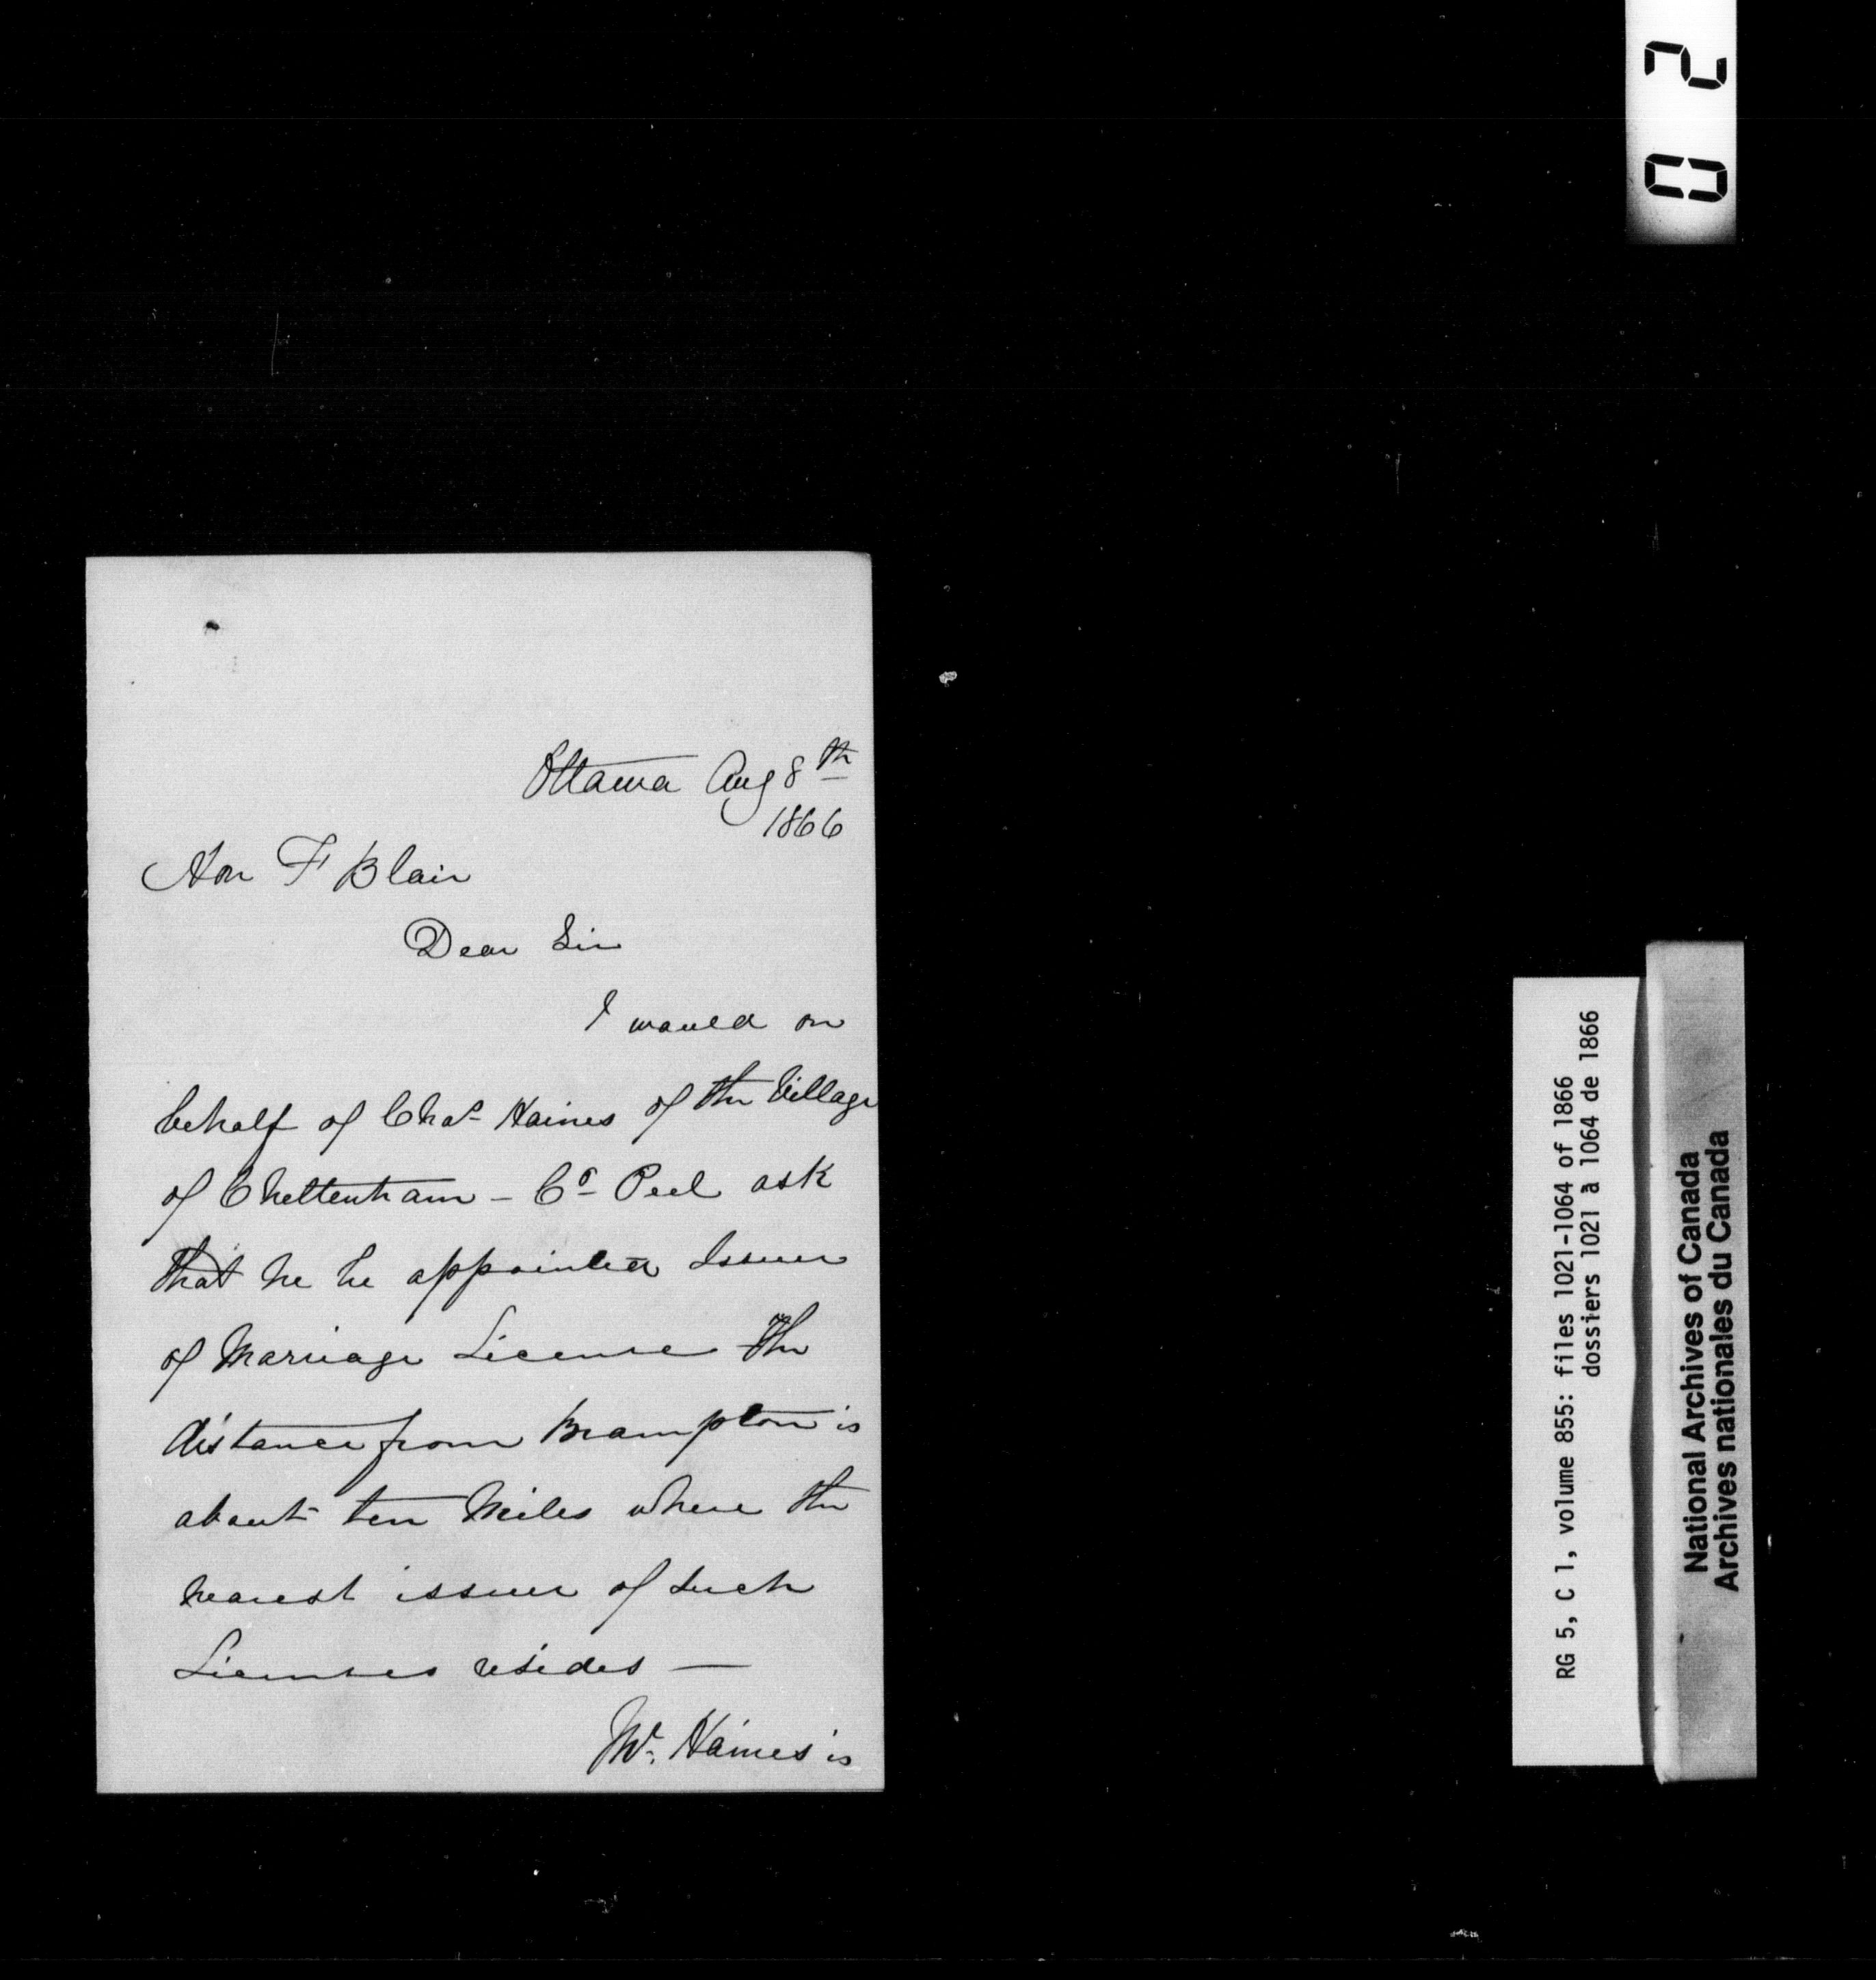 Ottawa Aug 8th
1866
Hon F Blair
Dear Sir
I would on
behalf of Chas Haines of the Village
of Cheltenham - Co Peel ask
that he be appointed Issuer
of Marriage License The
distance from Brampton is
about ten Miles where the
nearest issuer of such
Licenses resides —
Mr. Haines is
02
RG 5, C 1, volume 855: files 1021-1064 of 1866
dossiers 1021 à 1064 de 1866
National Archives of Canada
Archives nationales du Canada